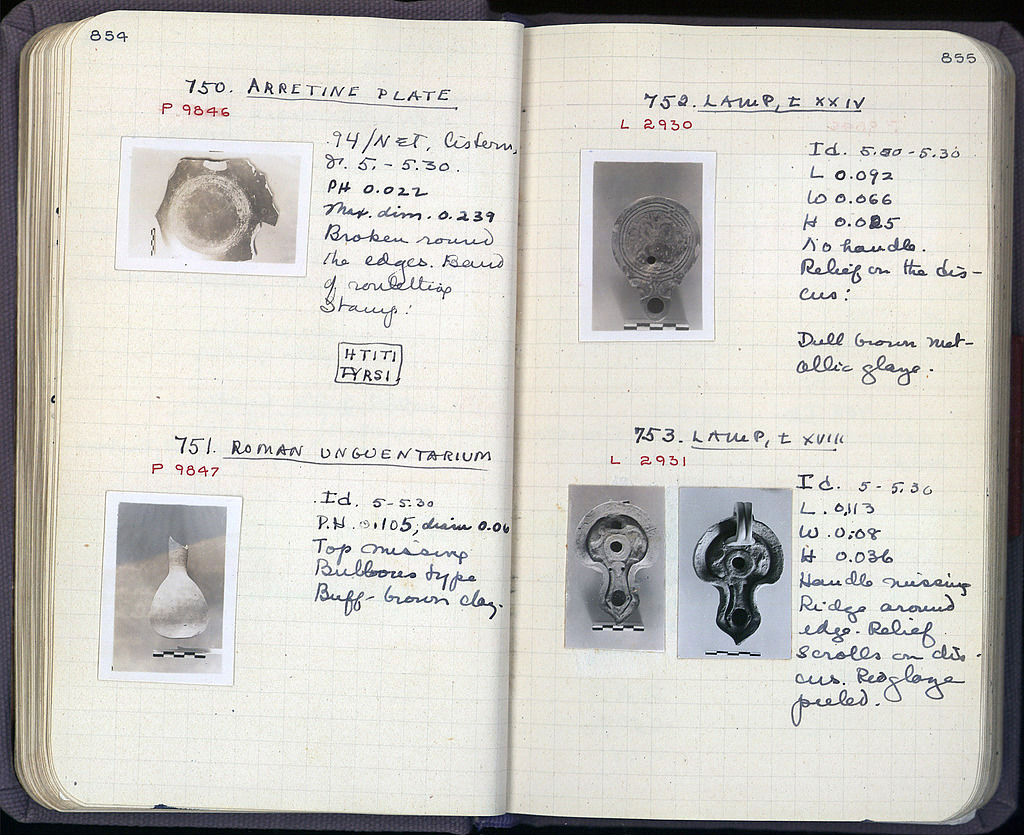 854
750. ARRETINE PLATE
P 9846
94/ΝΣΤ, Cistern,
5. - 5.30.
PH 0.022
Max. dim. 0.239
Broken round
the edges. Band
of rouletting
Stamp:
HTITI
TYRSI
751. ROMAN UNGUENTARIUM
P 9847
Id. 5 - 5.30
P.H. 0.105, diam 0.06
Top missing
Bulbous type
Buff-brown clay.
855
752. LAMP, t XXIV
L 2930
Id. 5.50 - 5.30
L 0.092
W 0.066
H 0.025
No handle.
Relief on the dis-
cus:
Dull brown met-
allic glaze.
753. LAMP, t XVIII
L 2931
Id. 5 - 5.30
L. 0.113
W. 0.08
H 0.036
Handle missing
Ridge around
edge. Relief
scrolls on dis-
cus. Red glaze
peeled.